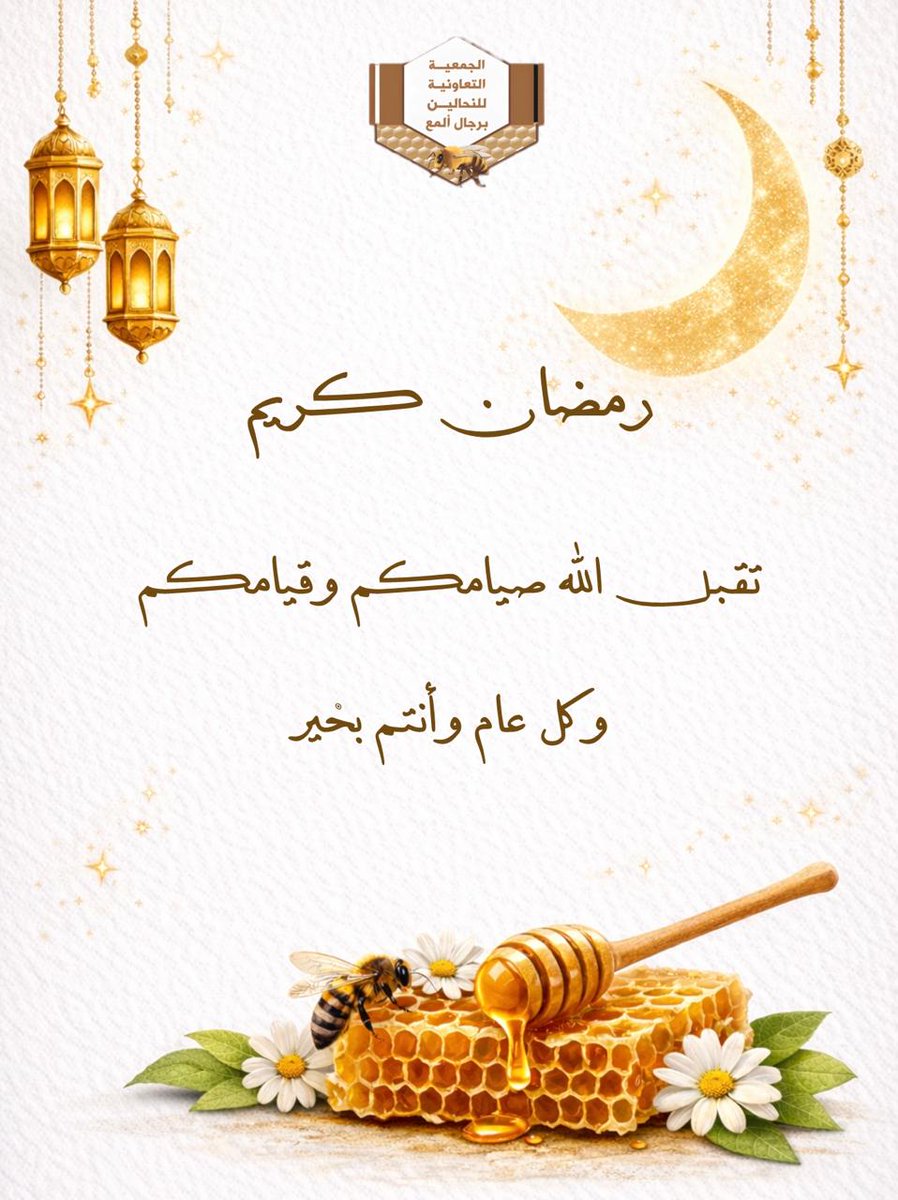 الجمعيــة
التعاونية
للنحاليــن
برجال ألمع
رمضان كريم
تقبل الله صيامكم وقيامكم
وكل عام وأنتم بخير